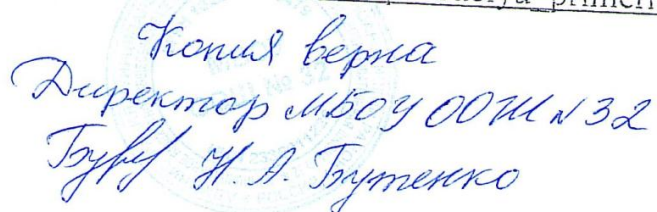 Копия верна
Директор МБОУ ООШ № 32
Н. А. Бутенко